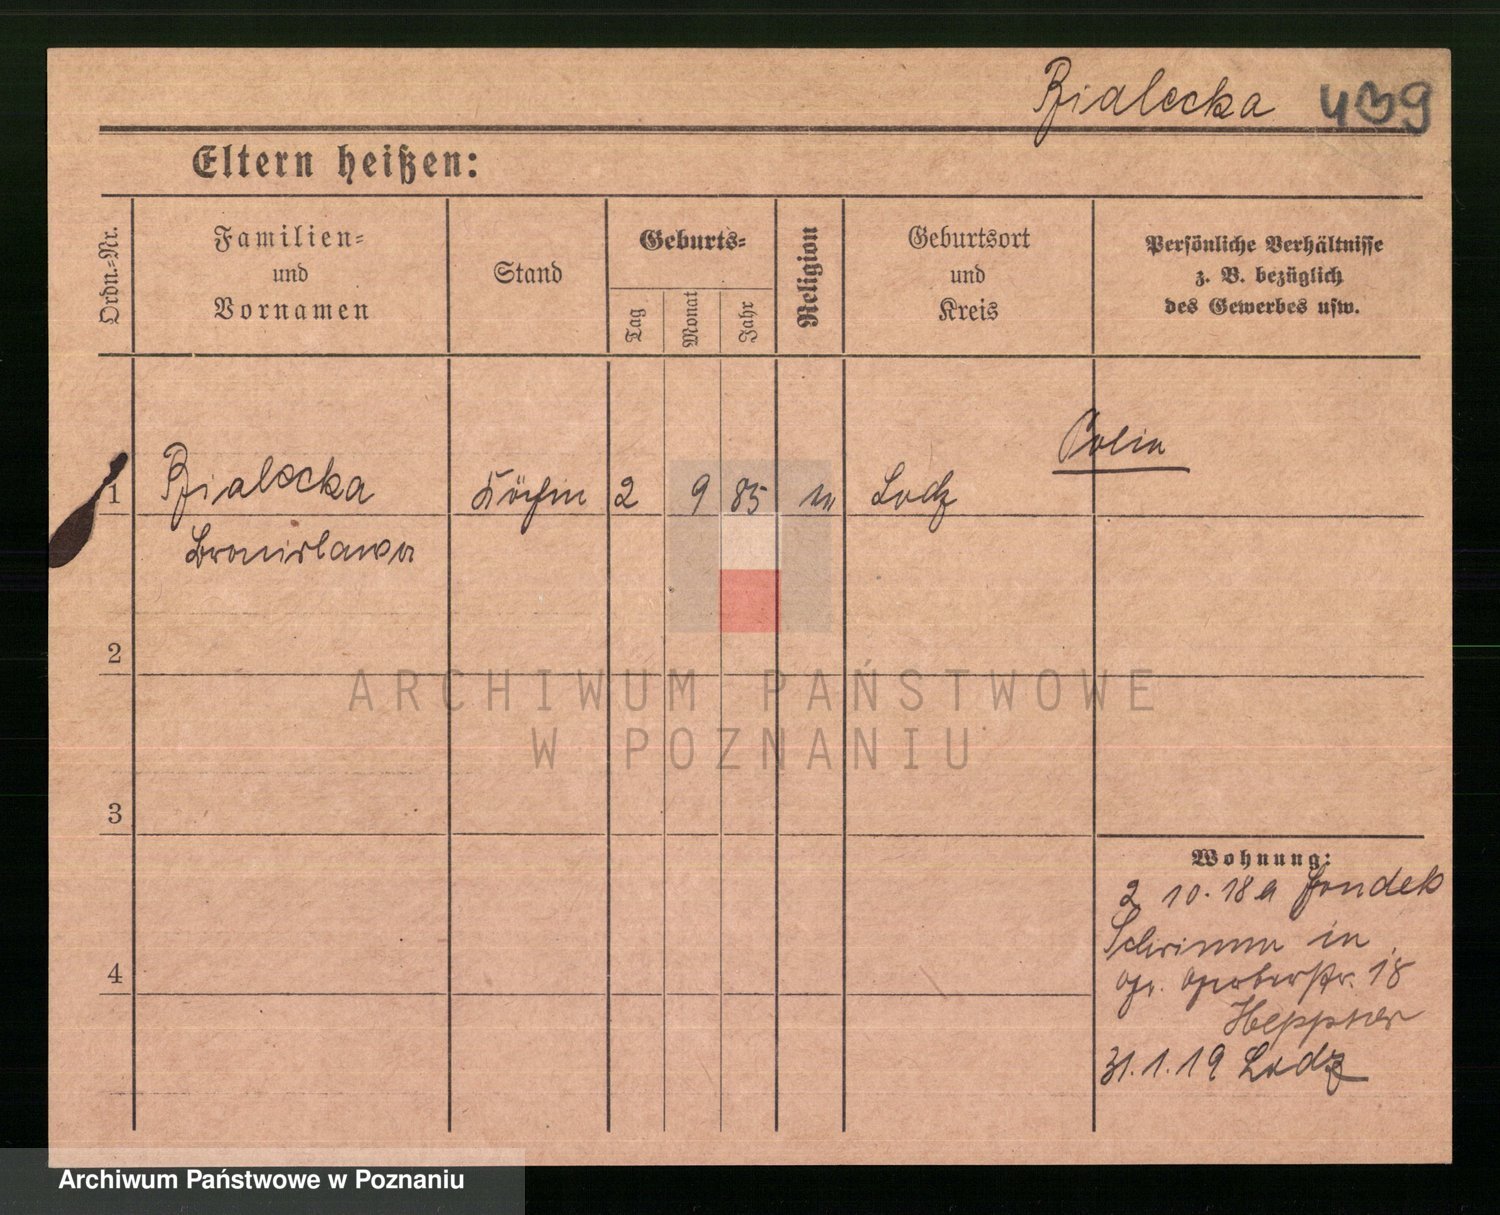 Bialecka 439
Eltern heißen:
Ordn.=Nr.
Familien=
und
Vornamen
Stand
Geburts=
Tag
Monat
Jahr
Religion
Geburtsort
und
Kreis
Persönliche Verhältnisse
z. B. bezüglich
des Gewerbes usw.
Polin
1 Bialecka Köchin 2 9 85 Lodz
Bronislawa
2
ARCHIWUM PAŃSTWOWE
W POZNANIU
3
Wohnung:
2 10. 18 a
Schrimm in
4
18
Heppner
31. 1. 19 Lodz
Archiwum Państwowe w Poznaniu